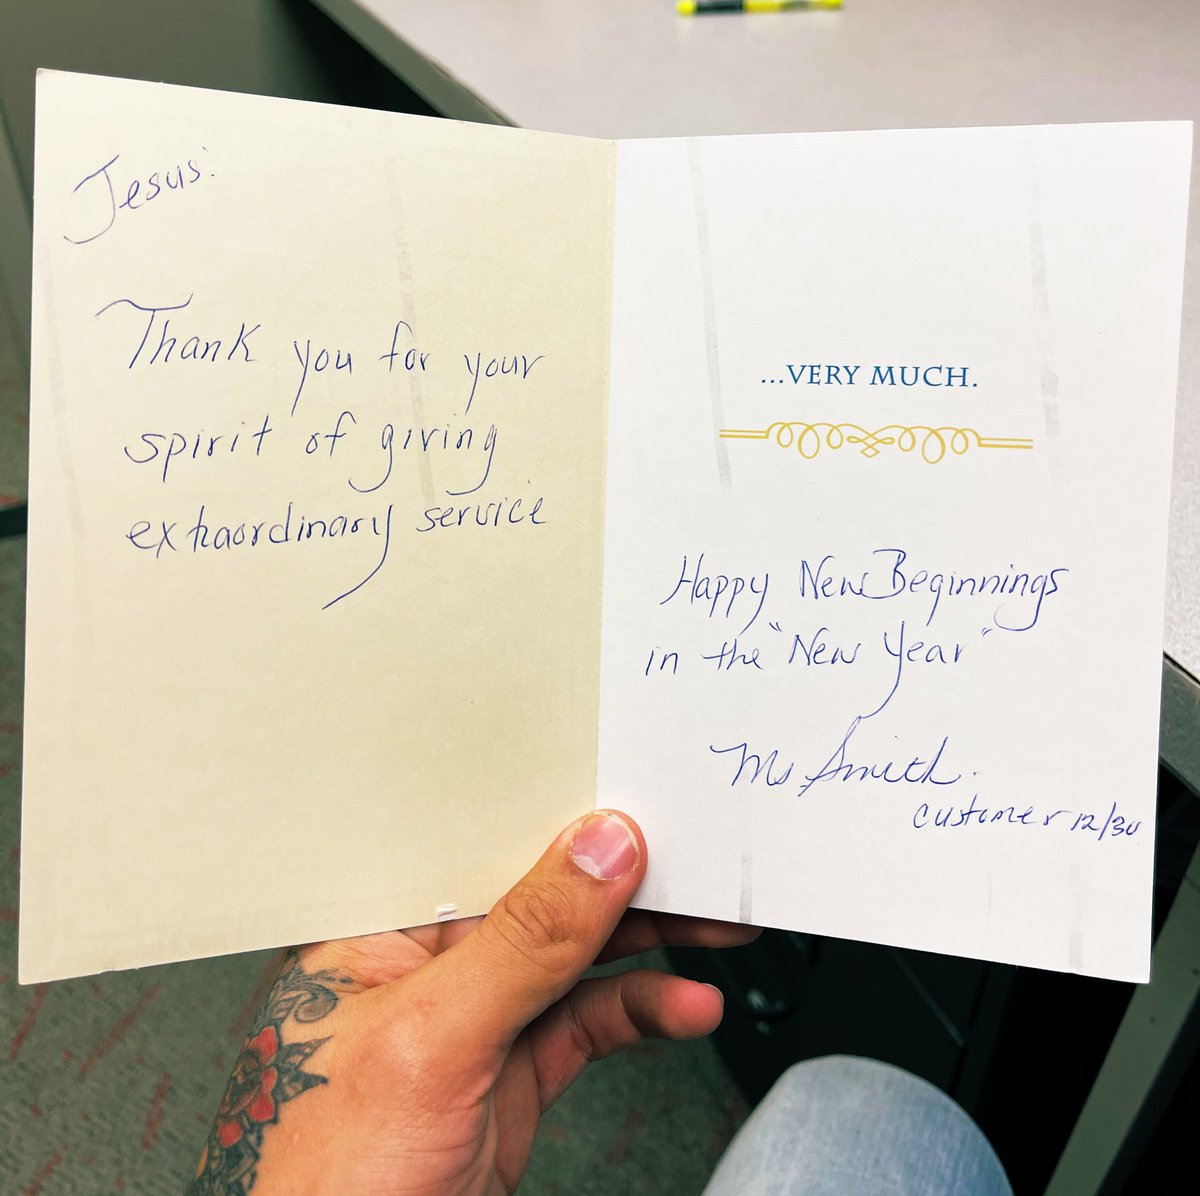 Jesus:
Thank you for your
spirit of giving
extraordinary service
...VERY MUCH.
Happy New Beginnings
in the "New Year"
Ms Smith.
customer 12/30